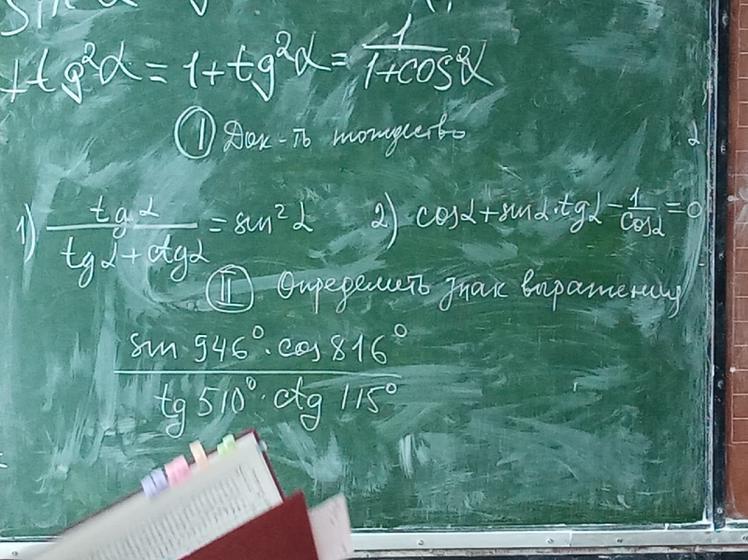 sin α
+tg²α = 1+tg²α = 1/(1+cos²α)
I Док-ть тождество
1) tg α/(tg α + ctg α) = sin² α 2) cos α + sin α · tg α − 1/cos α = 0
II Определить знак выражения
sin 946° · cos 816°
tg 510° · ctg 115°